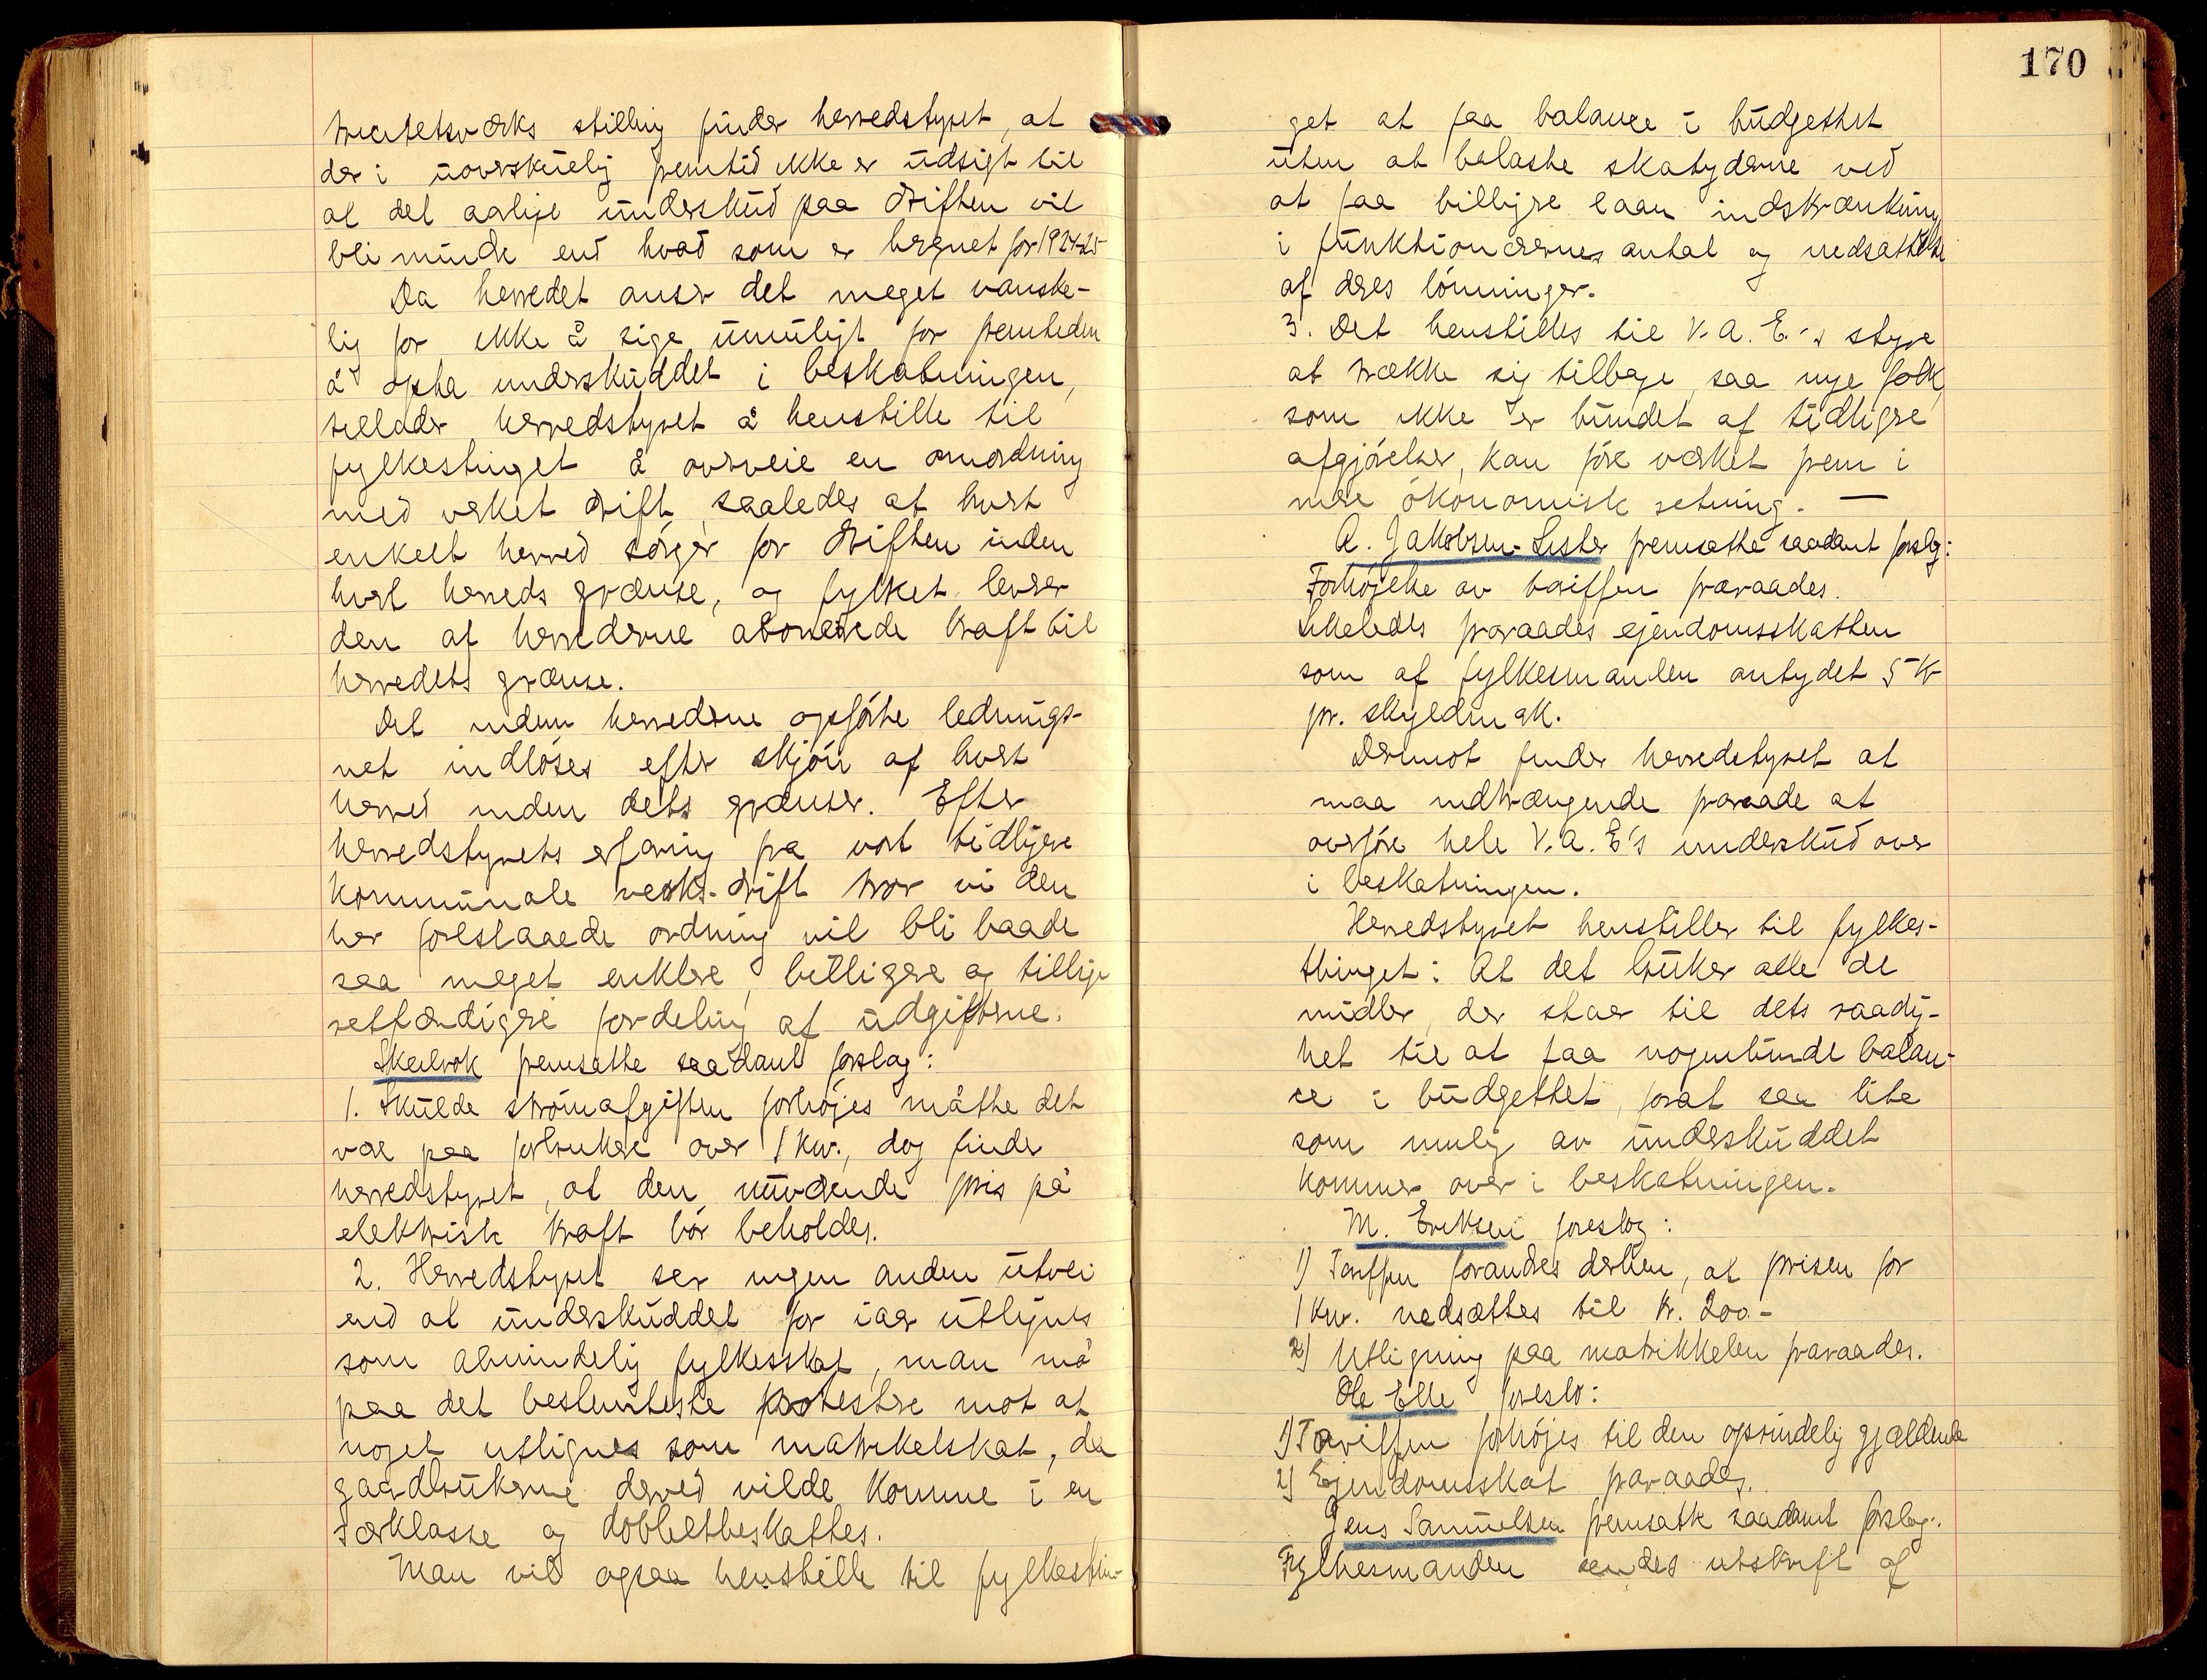 tricitetsværks stilling finder herredstyret, at
der i uoverskuelig fremtid ikke er udsigt til
at det aarlige underskud paa driften vil
bli mindre end hvad som er beregnet for 1924-25
Da herredet anser det meget vanske-
lig for ikke å sige umuligt for fremtiden
å opta underskuddet i beskatningen,
tillader herredstyret å henstille til
fylkestinget å overveie en omordning
med verket drift, saaledes at hvert
enkelt herred sørger for driften inden
hvert herreds grænse, og fylket leverer
den af herrederne abonerede kraft til
herredets grænse.
Det inden herrederne opførte lednings-
net indløses efter skjøn af hvert
herred inden dets grænser. Efter
herredstyrets erfaring fra vort tidligere
kommunale verks-drift tror vi den
her foreslaaede ordning vil bli baade
saa meget enklere, billigere og tillige
retfærdigere fordeling af udgifterne.
Skeibrok fremsatte saadant forslag:
1. Skulde strømafgiften forhøjes måtte det
være paa forbrukere over 1 kw., dog finder
herredstyret, at den nuværende pris på
elektrisk kraft bør beholdes.
2. Herredstyret ser ingen anden utvei
end at underskuddet for iaar utlignes
som almindelig fylkesskat, man må
paa det bestemteste protestere mot at
noget utlignes som matrikelskat, da
gaardbrukerne derved vilde komme i en
særklasse og dobbeltbeskattes.
Man vil ogsaa henstille til fylkestin-
170
get at faa balance i budgettet
uten at belaste skatyderne ved
at faa billigere laan indskrænkning
i funktionærernes antal og nedsættelse
af deres lønninger.
3. Det henstilles til V.A.E.'s styre
at trække sig tilbage, saa nye folk,
som ikke er bundet af tidligere
afgjørelser, kan føre verket frem i
mere økonomisk retning. —
A. Jakobsen-Lister fremsatte saadant forslag:
Forhøjelse av tariffen fraraades.
Likeledes fraraades ejendomsskatten
som af fylkesmanden antydet 5 kr
pr. skyldmark.
Derimot finder herredstyret at
maa indtrængende fraraade at
overføre hele V.A.E's underskud over
i beskatningen.
Herredstyret henstiller til fylkes-
thinget: At det bruker alle de
midler, der staar til dets raadig-
het til at faa nogenlunde balan-
ce i budgettet, forat saa lite
som mulig av underskuddet
kommer over i beskatningen.
M. Eriksen foreslog:
1) Tariffen forandres derhen, at prisen for
1 kw. nedsættes til kr. 200.-
2) Utligning paa matrikkelen fraraades.
Ole Elle foreslo:
1) Tariffen forhøjes til den oprindelig gjældende
2) Ejendomsskat fraraades.
Jens Samuelsen fremsatte saadant forslag:
Fylkesmanden sendes utskrift af